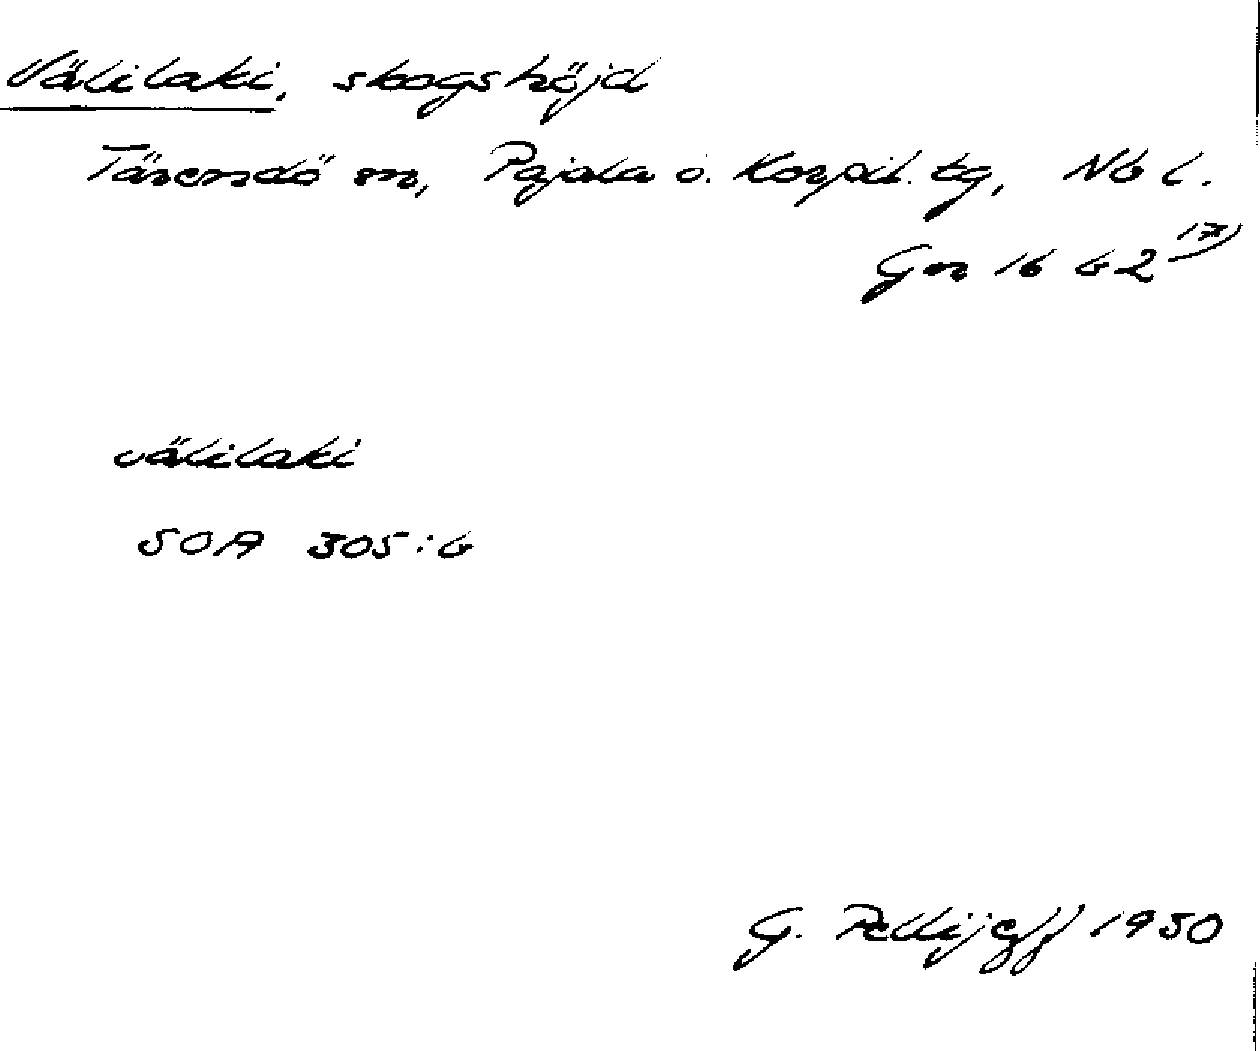 Välilaki, skogshöjd
Tärendö sn, Pajala o. Korpil. tg, Nb l.
Gn 16 b2 17)
välilaki
SOA 305:6
G. Pellijeff 1950